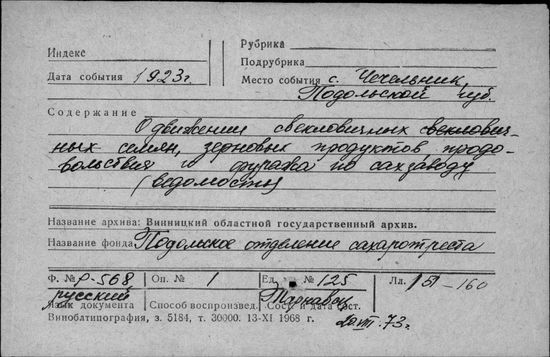 Индекс
Рубрика
Подрубрика
Дата события 1923 г.
Место события с. Чечельник,
Подольской губ.
Содержание
О движении свекловичных свеклович-
ных семян, зерновых продуктов, продо-
вольствия и фуража по сахзаводу
(ведомость)
Название архива: Винницкий областной государственный архив.
Название фонда Подольское отделение сахаротреста
Ф. № Р-568 Оп. № 1 Ед. № 125 Лл. 151-160
русский
Язык документа Способ воспроизвед. Сост. и дата сост.
Виноблтипография, з. 5184, т. 30000. 13-XI 1968 г. 20.VII.73 г.